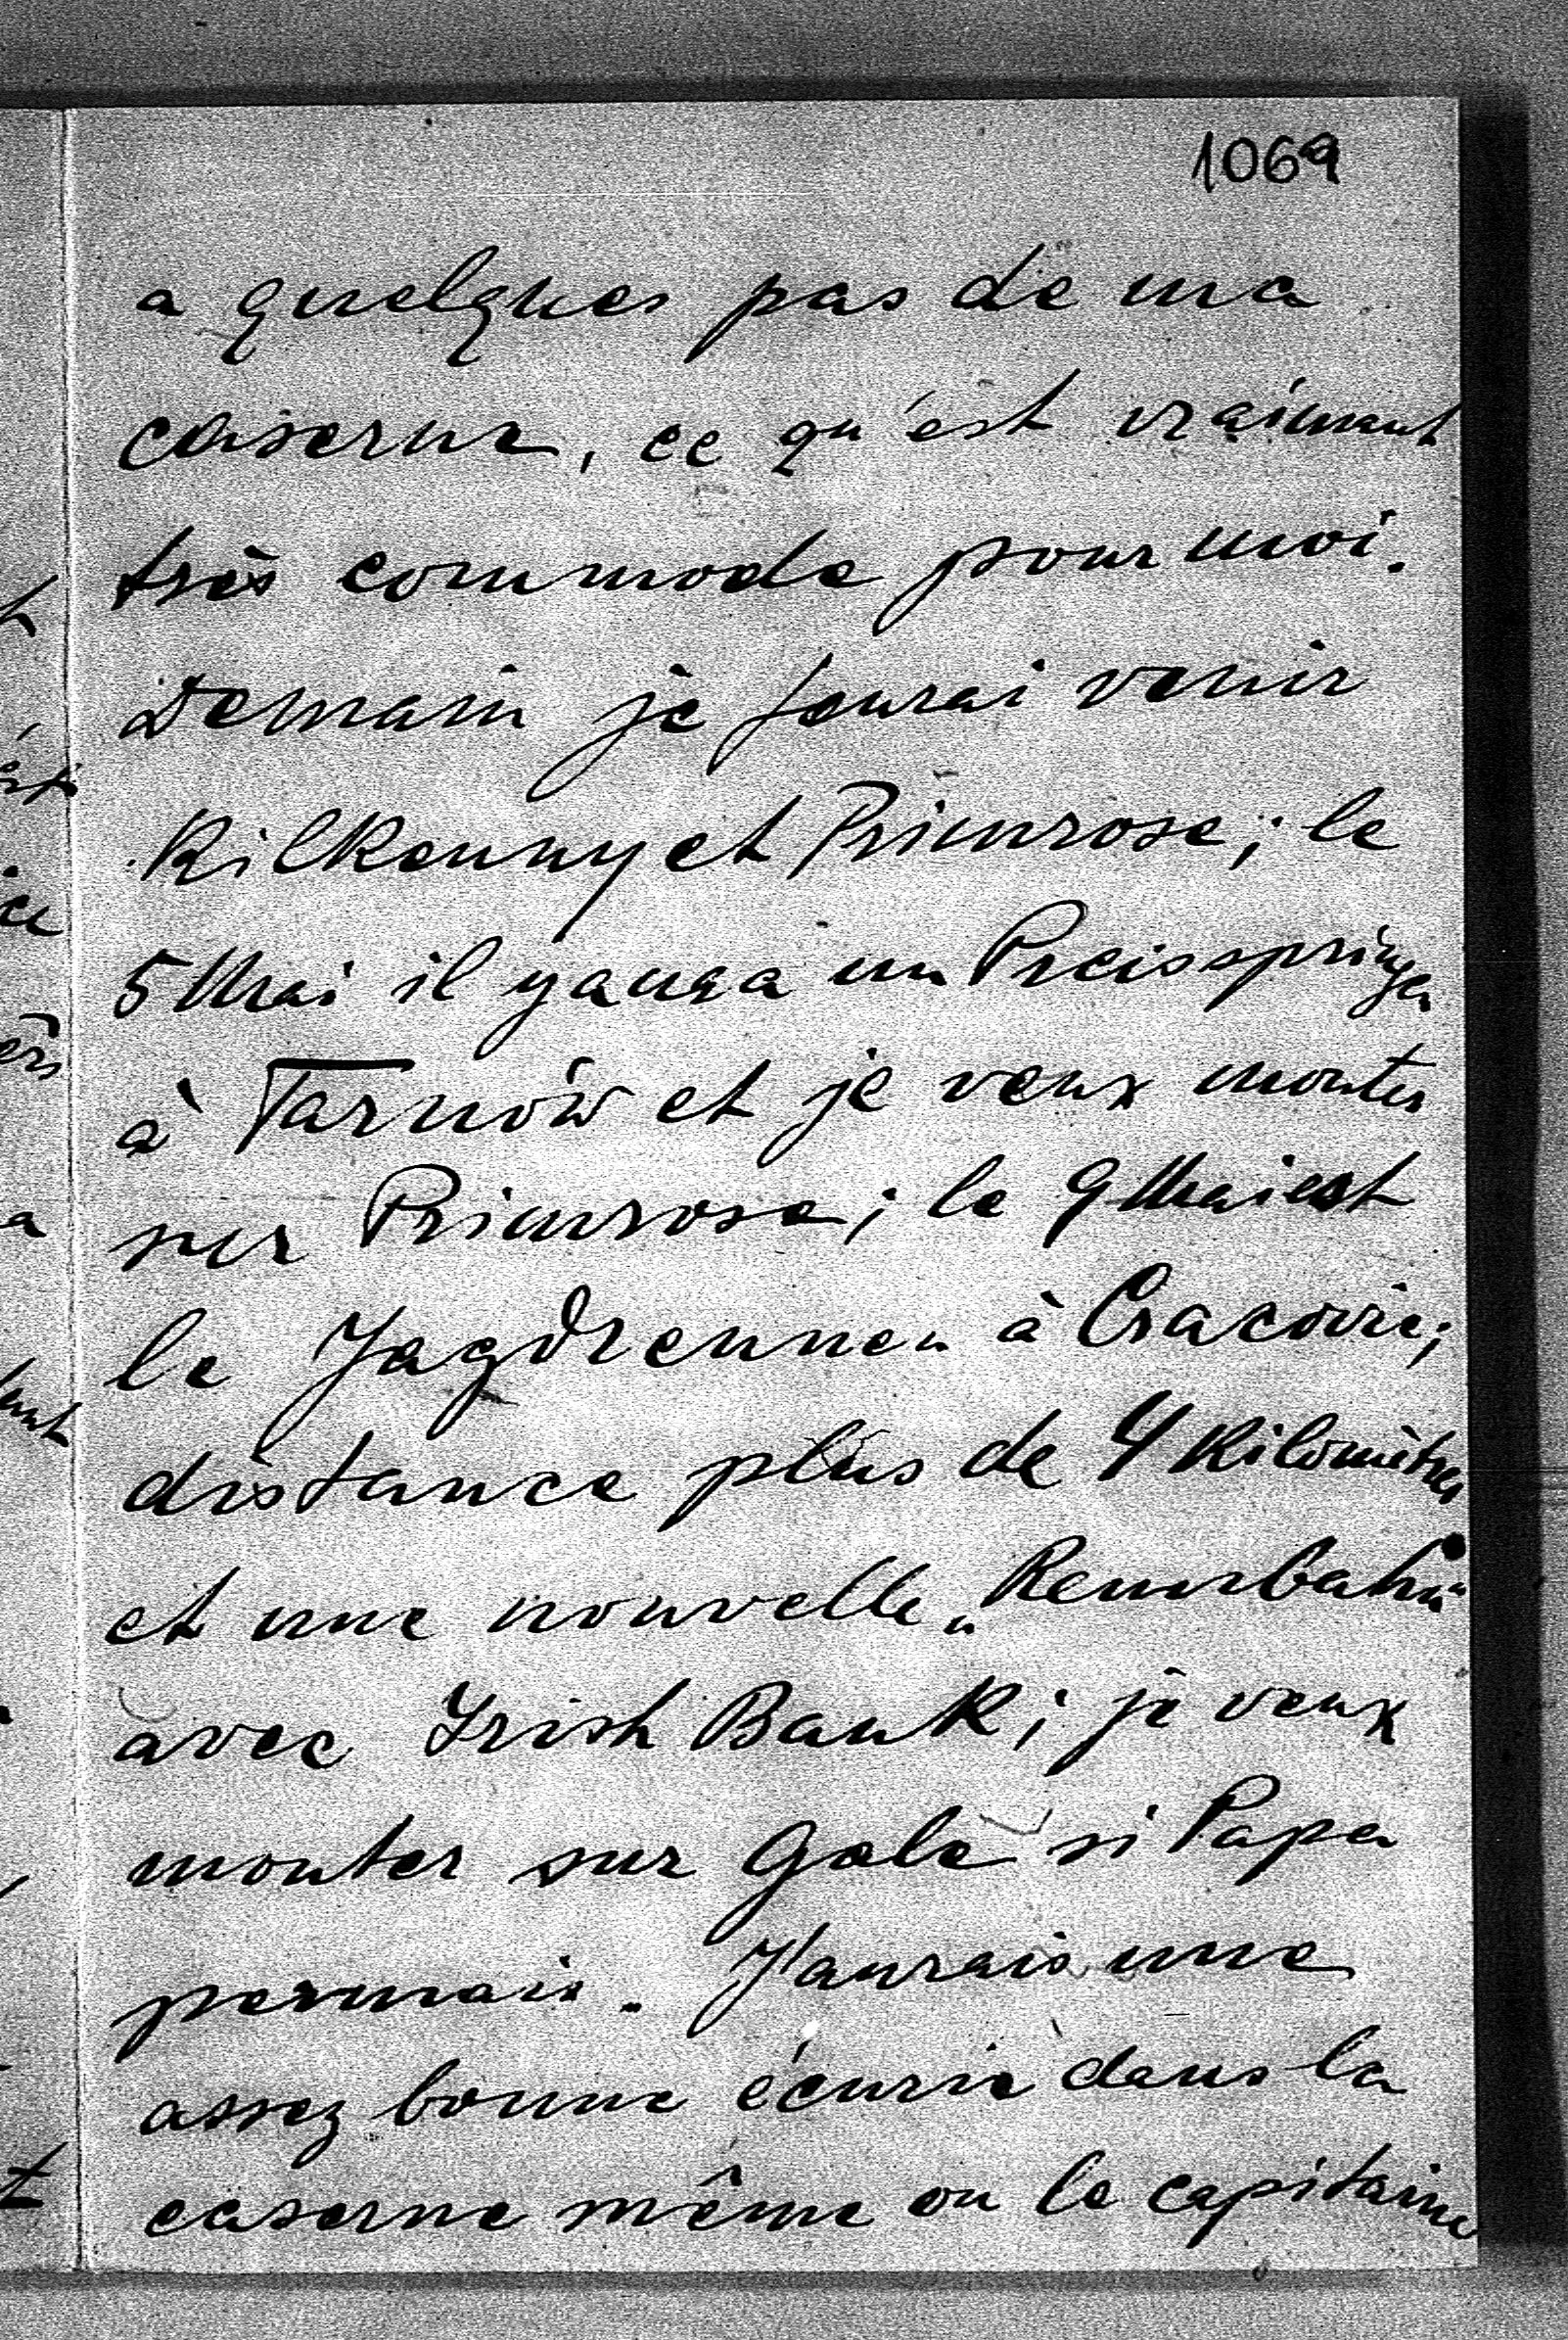 1069
a quelques pas de ma
caserne, ce qu'est vraimant
très commode pour moi.
Demain je ferai venir
Kilkenny et Primrose; le
5 Mai il y aura un Preisspringen
à Tarnów et je veux monter
sur Primrose; le 9 Mai est
le Jagdrennen à Cracovie;
distance plus de 4 Kilomètres
et une nouvelle „Rennbahn“
avec Irish Bank; je veux
monter sur Gale si Papa
permais. J'aurais une
assez bonne écurie dans la
caserne même ou le capitaine